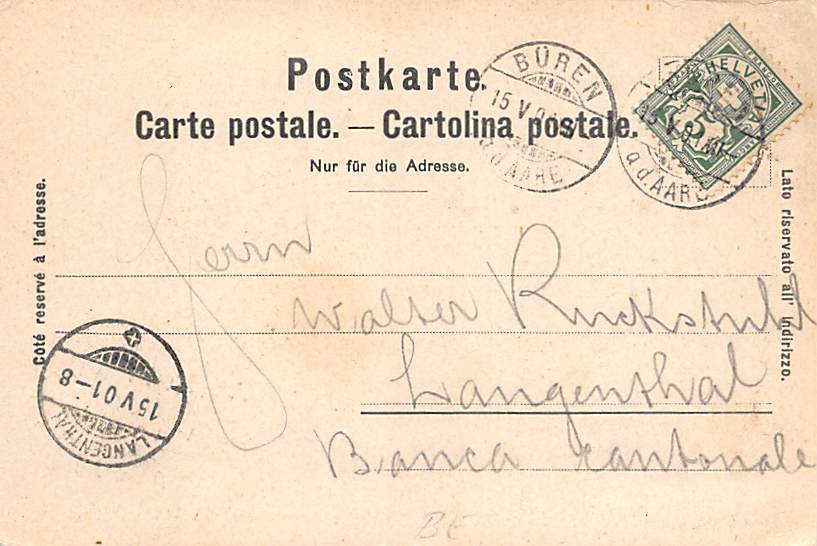 Postkarte.
Carte postale. — Cartolina postale.
Nur für die Adresse.
Côté reservé à l'adresse.
Lato riservato all' indirizzo.
HELVETIA
FRANCO
5
BÜREN
15 V 01
a/d AARE
BÜREN
15 V 01
a/d AARE
Herrn
Walter Ruckstuhl
Langenthal
Banca cantonale
15 V 01-8
LANGENTHAL
BE